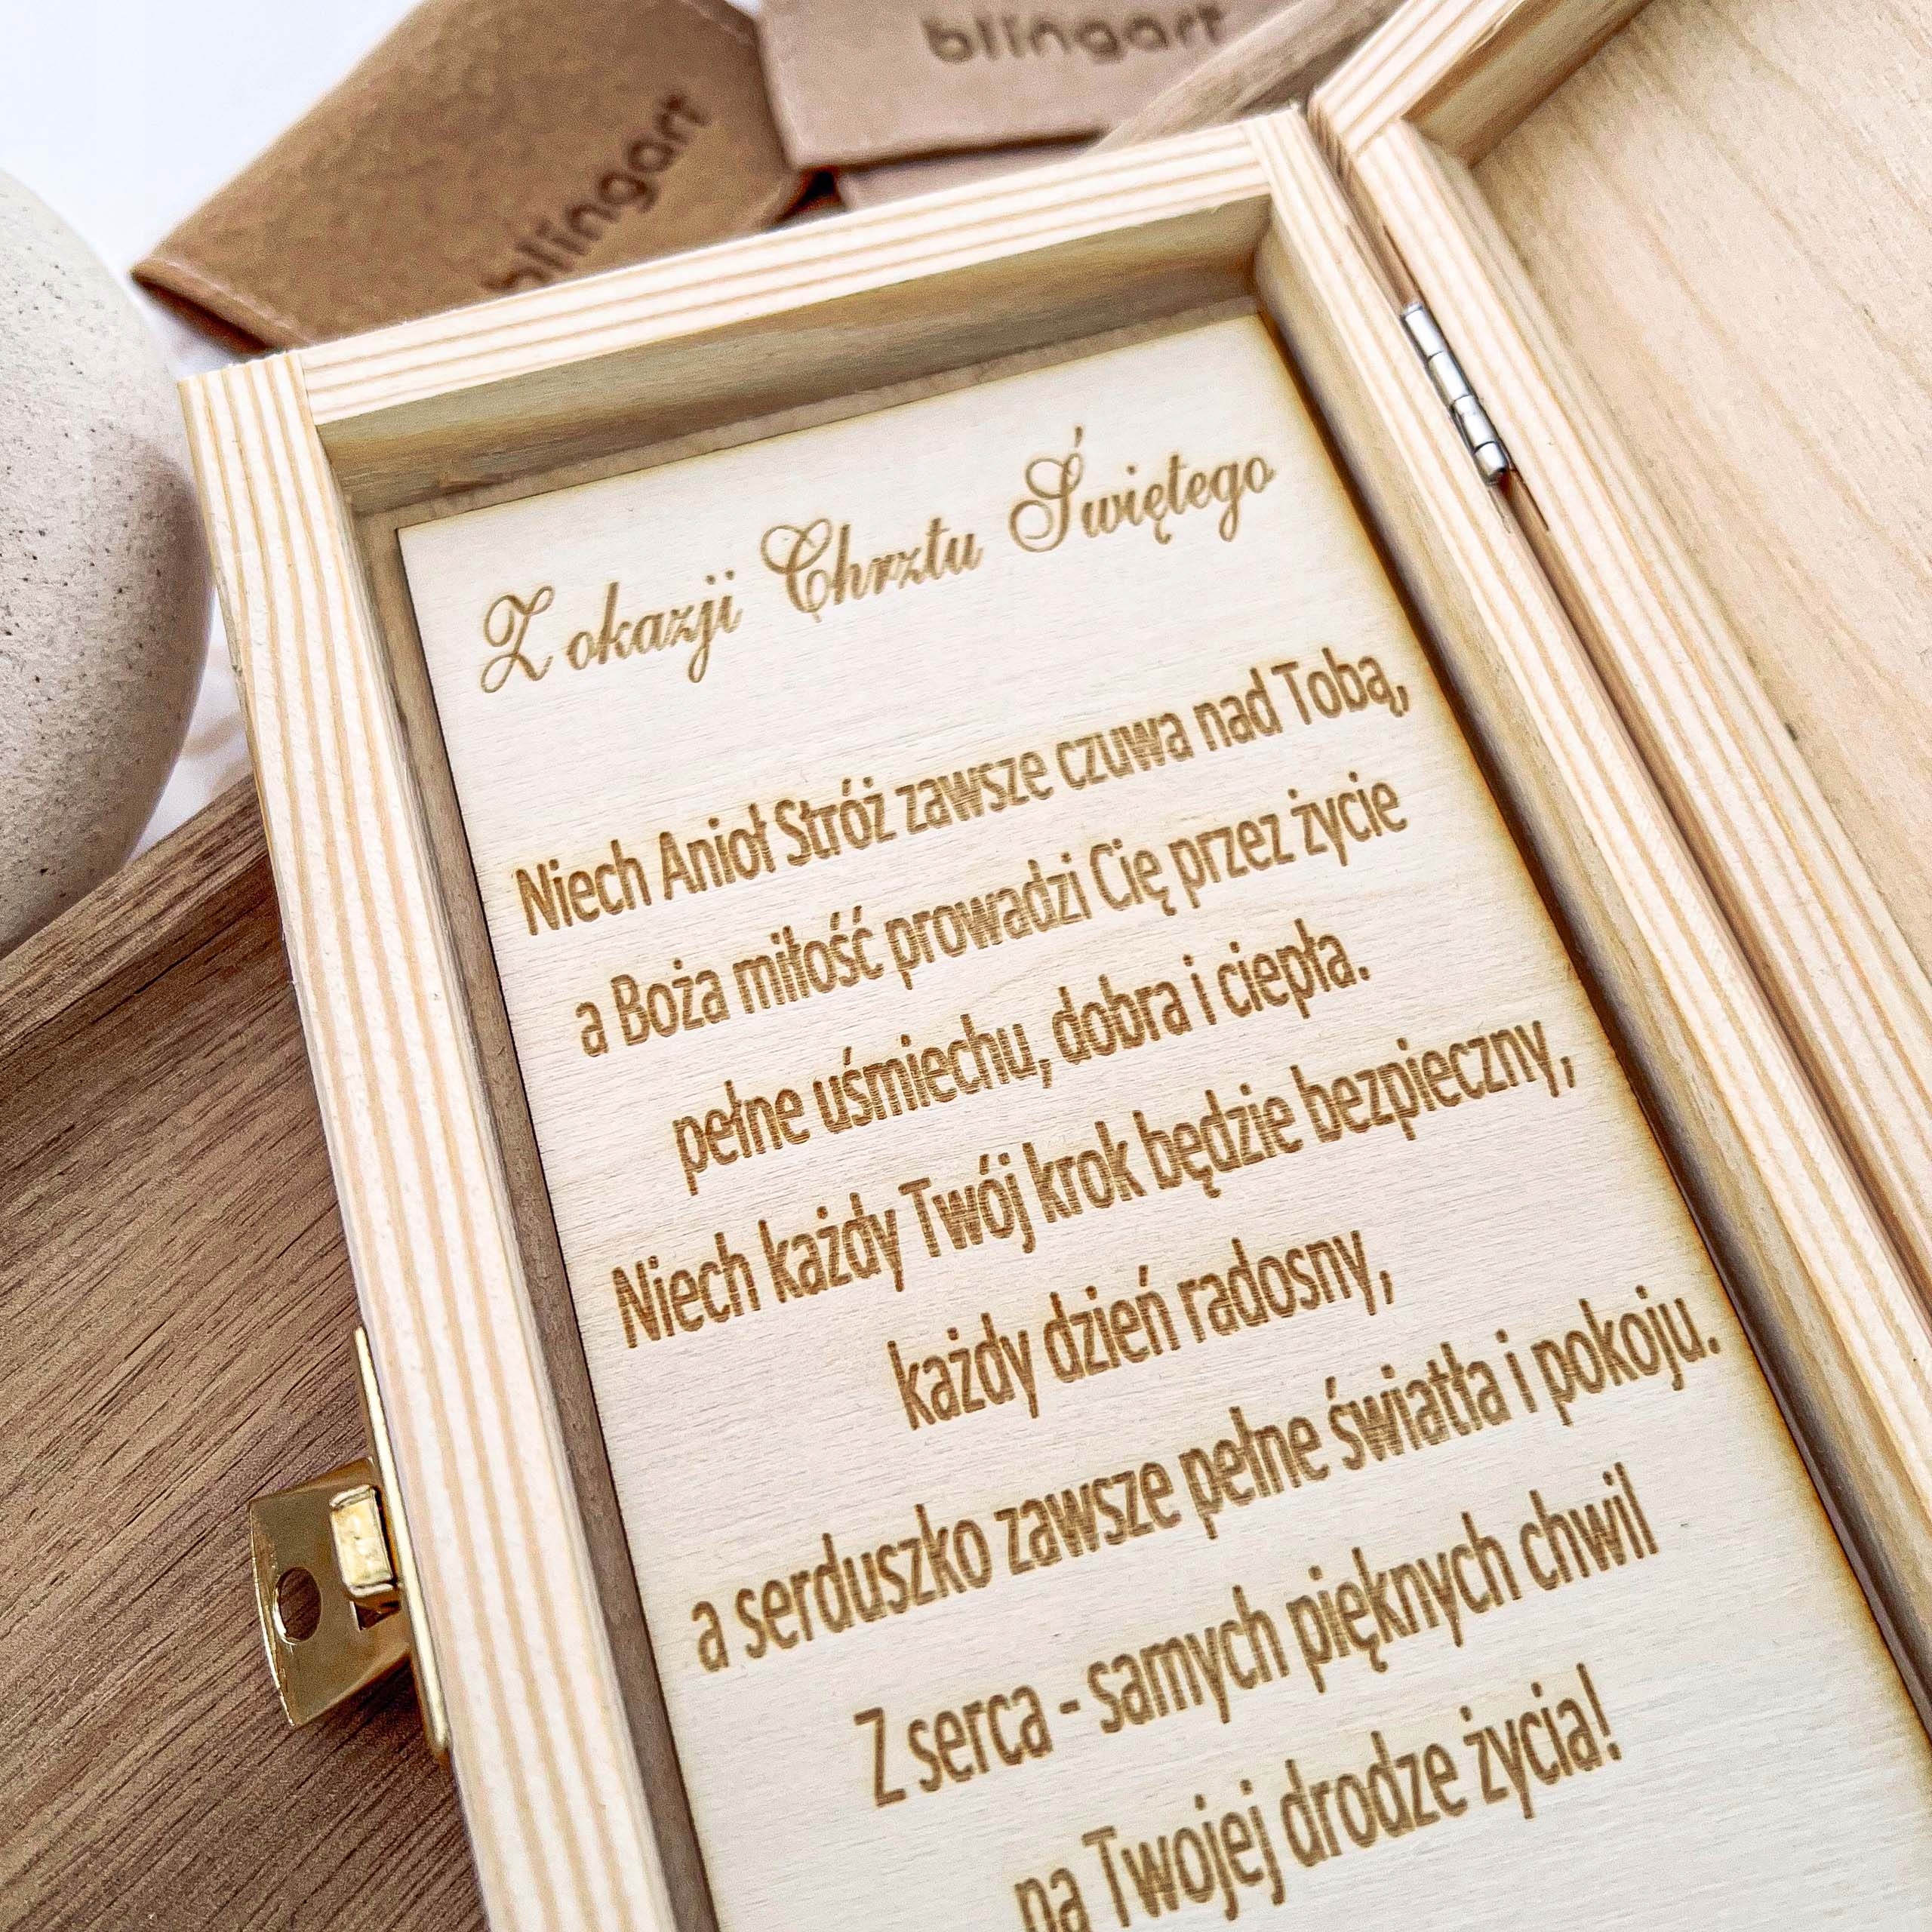 blingart
blingart
Z okazji Chrztu Świętego
Niech Anioł Stróż zawsze czuwa nad Tobą,
a Boża miłość prowadzi Cię przez życie
pełne uśmiechu, dobra i ciepła.
Niech każdy Twój krok będzie bezpieczny,
każdy dzień radosny,
a serduszko zawsze pełne światła i pokoju.
Z serca - samych pięknych chwil
na Twojej drodze życia!